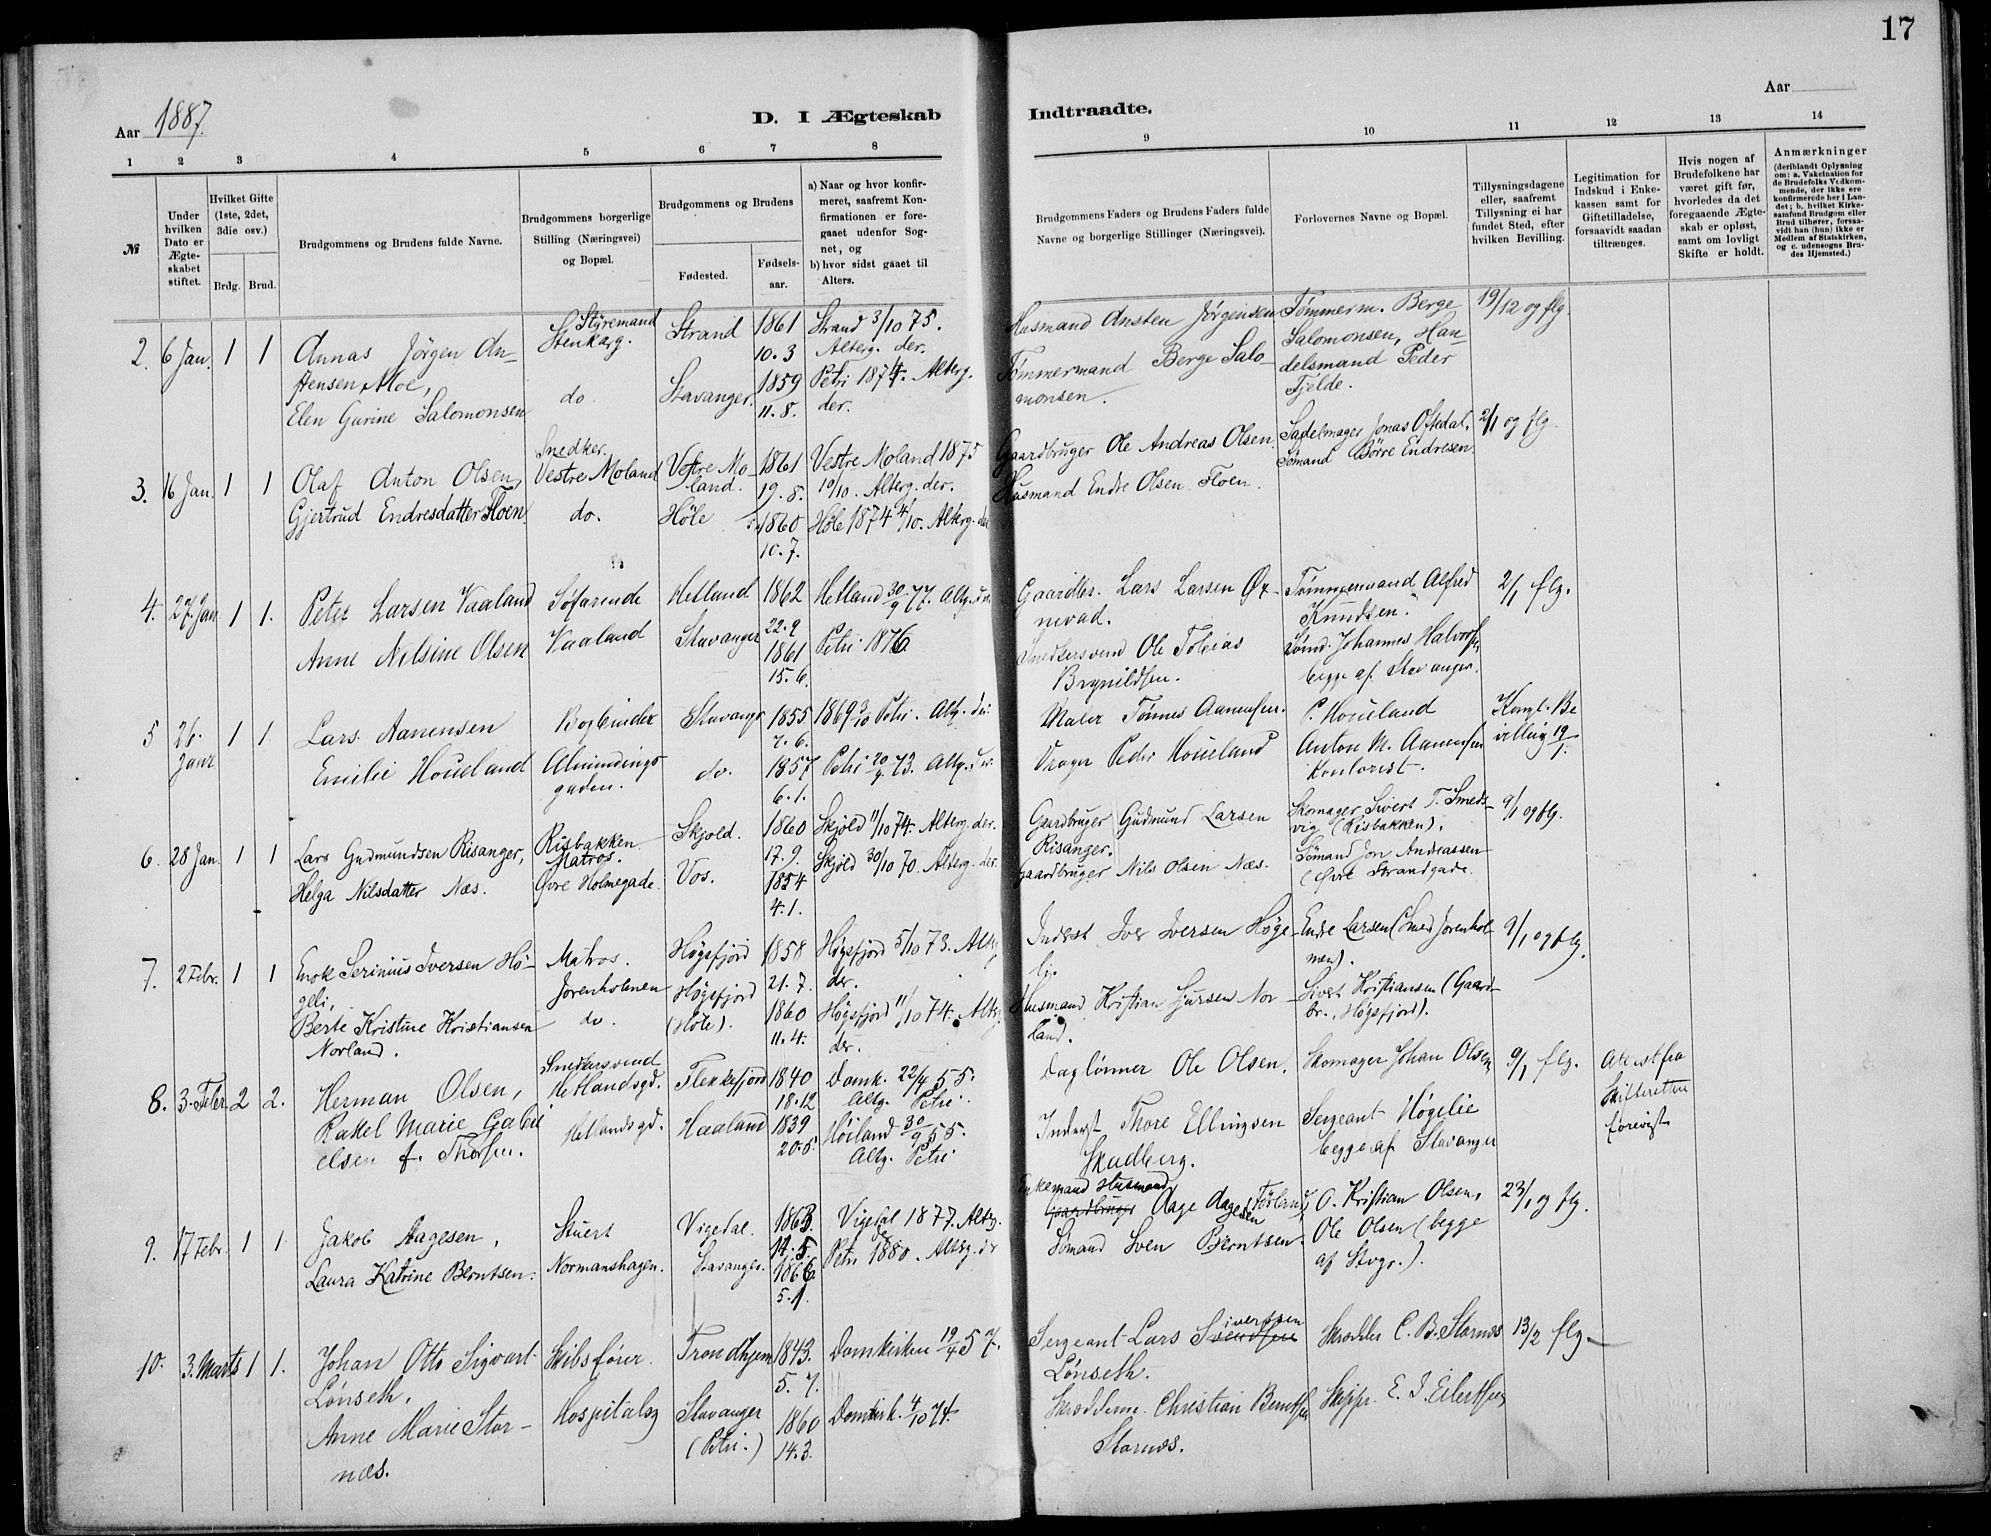 17
Aar 1887.
D. I Ægteskab Indtraadte.
Aar
1 2 3 4 5 6 7 8 9 10 11 12 13 14
№
Under hvilken Dato er Ægteskabet stiftet.
Hvilket Gifte (1ste, 2det, 3die osv.)
Brdg. Brud.
Brudgommens og Brudens fulde Navne.
Brudgommens borgerlige Stilling (Næringsvei) og Bopæl.
Brudgommens og Brudens
Fødested.
Fødselsaar.
a) Naar og hvor konfirmeret, saafremt Konfirmationen er foregaaet udenfor Sognet, og
b) hvor sidst gaaet til Alters.
Brudgommens Faders og Brudens Faders fulde Navne og borgerlige Stillinger (Næringsvei).
Forlovernes Navne og Bopæl.
Tillysningsdagene eller, saafremt Tillysning ei har fundet Sted, efter hvilken Bevilling.
Legitimation for Indskud i Enkekassen samt for Giftetilladelse, forsaavidt saadan tiltrænges.
Hvis nogen af Brudefolkene har været gift før, hvorledes da det foregaaende Ægteskab er opløst, samt om lovligt Skifte er holdt.
Anmærkninger
(deriblandt Oplysning om: a. Vakcination for de Brudefolks Vedkommende, der ikke ere konfirmerede her i Landet; b. hvilket Kirkesamfund Brudgom eller Brud tilhører, forsaavidt han (hun) ikke er Medlem af Statskirken, og c. udensogns Brudes Hjemsted.)
2. 6 Jan. 1 1
Annas Jörgen An-
stensen Moe,
Elen Gurine Salomonsen
Styremand
Stenkarg.
do.
Strand
Stavanger.
1861
10.3
1859
11.8.
Strand 3/10 75.
Alterg. der.
Petri 1874. Alterg.
der.
Husmand Ansten Jørgensen
Tømmermand Berge Salo-
monsen.
Tømmerm. Berge
Salomonsen, Han-
delsmand Peder
Fjelde.
19/12 og flg.
3. 16 Jan. 1 1
Olaf Anton Olsen,
Gjertrud Endresdatter Floen.
Snedker.
Vestre Moland
do.
Vestre Mo-
land.
Höle
1861
19.8.
1860
10.7.
Vestre Moland 1875
10/10. Alterg. der.
Höle 1874 4/10. Alterg. der
Gaardbruger Ole Andreas Olsen
Husmand Endre Olsen Floen.
Sadelmager Jonas Oftedal,
Sømand Børre Endresen
2/1 og flg.
4. 27. Jan 1 1.
Peter Larsen Vaaland
Anne Nilsine Olsen
Søfarende
Vaaland
Hetland
Stavanger
1862
22.9
1861
15.6.
Hetland 30/9 77. Altg. der
Petri 1876
Gaardbr. Lars Larsen Øx-
nevad.
Snedkersvend Ole Tobias
Brynildsen.
Tømmermand Alfred
Knudsen.
Sømd. Johannes Halvorsen
begge af Stavanger.
2/1 flg.
5 26. Janr 1 1
Lars Aanensen
Emilie Houeland
Bogbinder
Almindings
gaden.
Stavangr
do.
1855
7.6.
1857
6.1.
1869 3/10 Petri. Altg. der
Petri 20/4 73. Altg. der
Maler Tønnes Aanensen.
Vrager Peder Houeland
P. Houeland
Anton M. Aanensen
Kontorist.
Kongl. Be
villing 19/1.
6. 28 Jan. 1 1
Lars Gudmundsen Risanger,
Helga Nilsdatter Næs.
Risbakken
Matros.
Øvre Holmegade.
Skjold.
Vos.
1860
17.9.
1854
4.1.
Skjold 11/10 74. Alterg. der.
Skjold 30/10 70. Alterg. der.
Gaardbruger Gudmund Larsen
Risanger.
Gaardbruger Nils Olsen Næs.
Skomager Sivert T. Smeds-
vig (Risbakken).
Sømand Jon Andreassen
(Øvre Strandgade.
9/1 og flg.
7. 2 Febr. 1 1
Enok Serinius Iversen Hö-
geli,
Berte Kristine Kristiansen
Norland.
Matros.
Jorenholmen
do.
Högsfjord
Högsfjord
(Höle).
1858
21.7.
1860
11.4.
Högsfjord 5/10 73. Altg.
der.
Högsfjord 11/10 74. Altg.
der.
Inderst Iver Iversen Höge-
li.
Husmand Kristian Sjursen Nor-
land.
Endre Larsen (Smed Jorenhol-
men).
Sivert Kristiansen (Gaard-
br., Högsfjord).
9/1 og flg.
8. 3. Febr 2 2.
Herman Olsen,
Rakel Marie Gabri
elsen f. Thorsen.
Snedkersvend
Hetlandsgd.
Hetlandsgd.
Flekkefjord
Haaland
1840
18.12
1839
20.5.
Domk. 22/4 55.
Altg. Petri.
Höiland 30/9 55.
Altg. Petri
Daglønner Ole Olsen.
Inderst Thore Ellingsen
Skadberg.
Skomager Johan Olsen
Sergeant Høgelie
begge af Stavanger
9/1 flg.
Attest fra
Skifteretten
forevist
9. 17 Febr. 1 1
Jakob Aagesen,
Laura Katrine Berntsen.
Stuert
Normanshagen.
Vigedal.
Stavanger.
1863.
14.5.
1866
5.1.
Vigedal 1877. Altg.
Petri 1880. Altg. der
Enkemand Husmand
Gaardbruger Aage Aagesen Førland,
Sømand Sven Berntsen
O. Kristian Olsen,
Ole Olsen (begge
af Stvgr.).
23/1 og flg.
10. 3. Marts 1 1.
Johan Otto Sigvart
Lönseth,
Anne Marie Stor-
næs.
Skibsfører.
Hospitalsg
Trondhjem
Stavanger
(Petri.)
1843.
5.7.
1860
14.3.
Domkirken 19/4 57.
Domkirk. 4/10 74.
Sergeant Lars Svendsen ivertsen
Lönseth.
Skræddem. Christian Berntsen
Stornæs.
Skrædder C. B. Stornæs
Skippr. E. I. Eilertsen
13/2 flg.